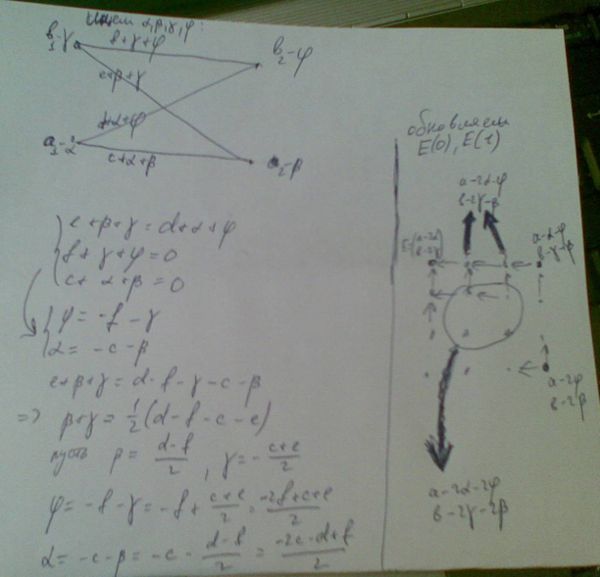 Ищем α, β, γ, φ:
b₁-γ
f+γ+φ
b₂-φ
e+β+γ
d+α+φ
a₁-α
c+α+β
a₂-β
e+β+γ = d+α+φ
f+γ+φ = 0
c+α+β = 0
φ = -f-γ
α = -c-β
e+β+γ = d-f-γ-c-β
=> β+γ = 1/2 (d-f-c-e)
пусть β = (d-f)/2, γ = -(c+e)/2
φ = -f-γ = -f + (c+e)/2 = (-2f+c+e)/2
α = -c-β = -c - (d-f)/2 = (-2c-d+f)/2
обновляем
E(0), E(1)
a-2α-φ
b-2γ-β
a-2α
b-2γ
a-α-φ
b-γ-β
a-2φ
b-2β
a-2α-2φ
b-2γ-2β